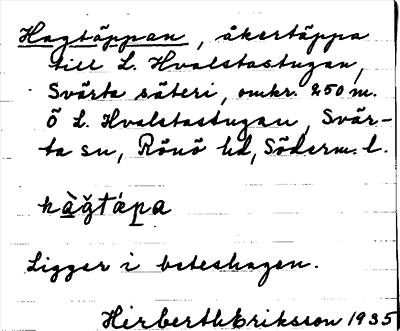 Hagtäppan, åkertäppa
till L. Hvalstastugan,
Svärta säteri, omkr. 250 m.
Ö L. Hvalstastugan, Svär-
ta sn, Rönö hd, Söderm. l.
hàǧtápa
Ligger i beteshagen.
Herberth Eriksson 1935